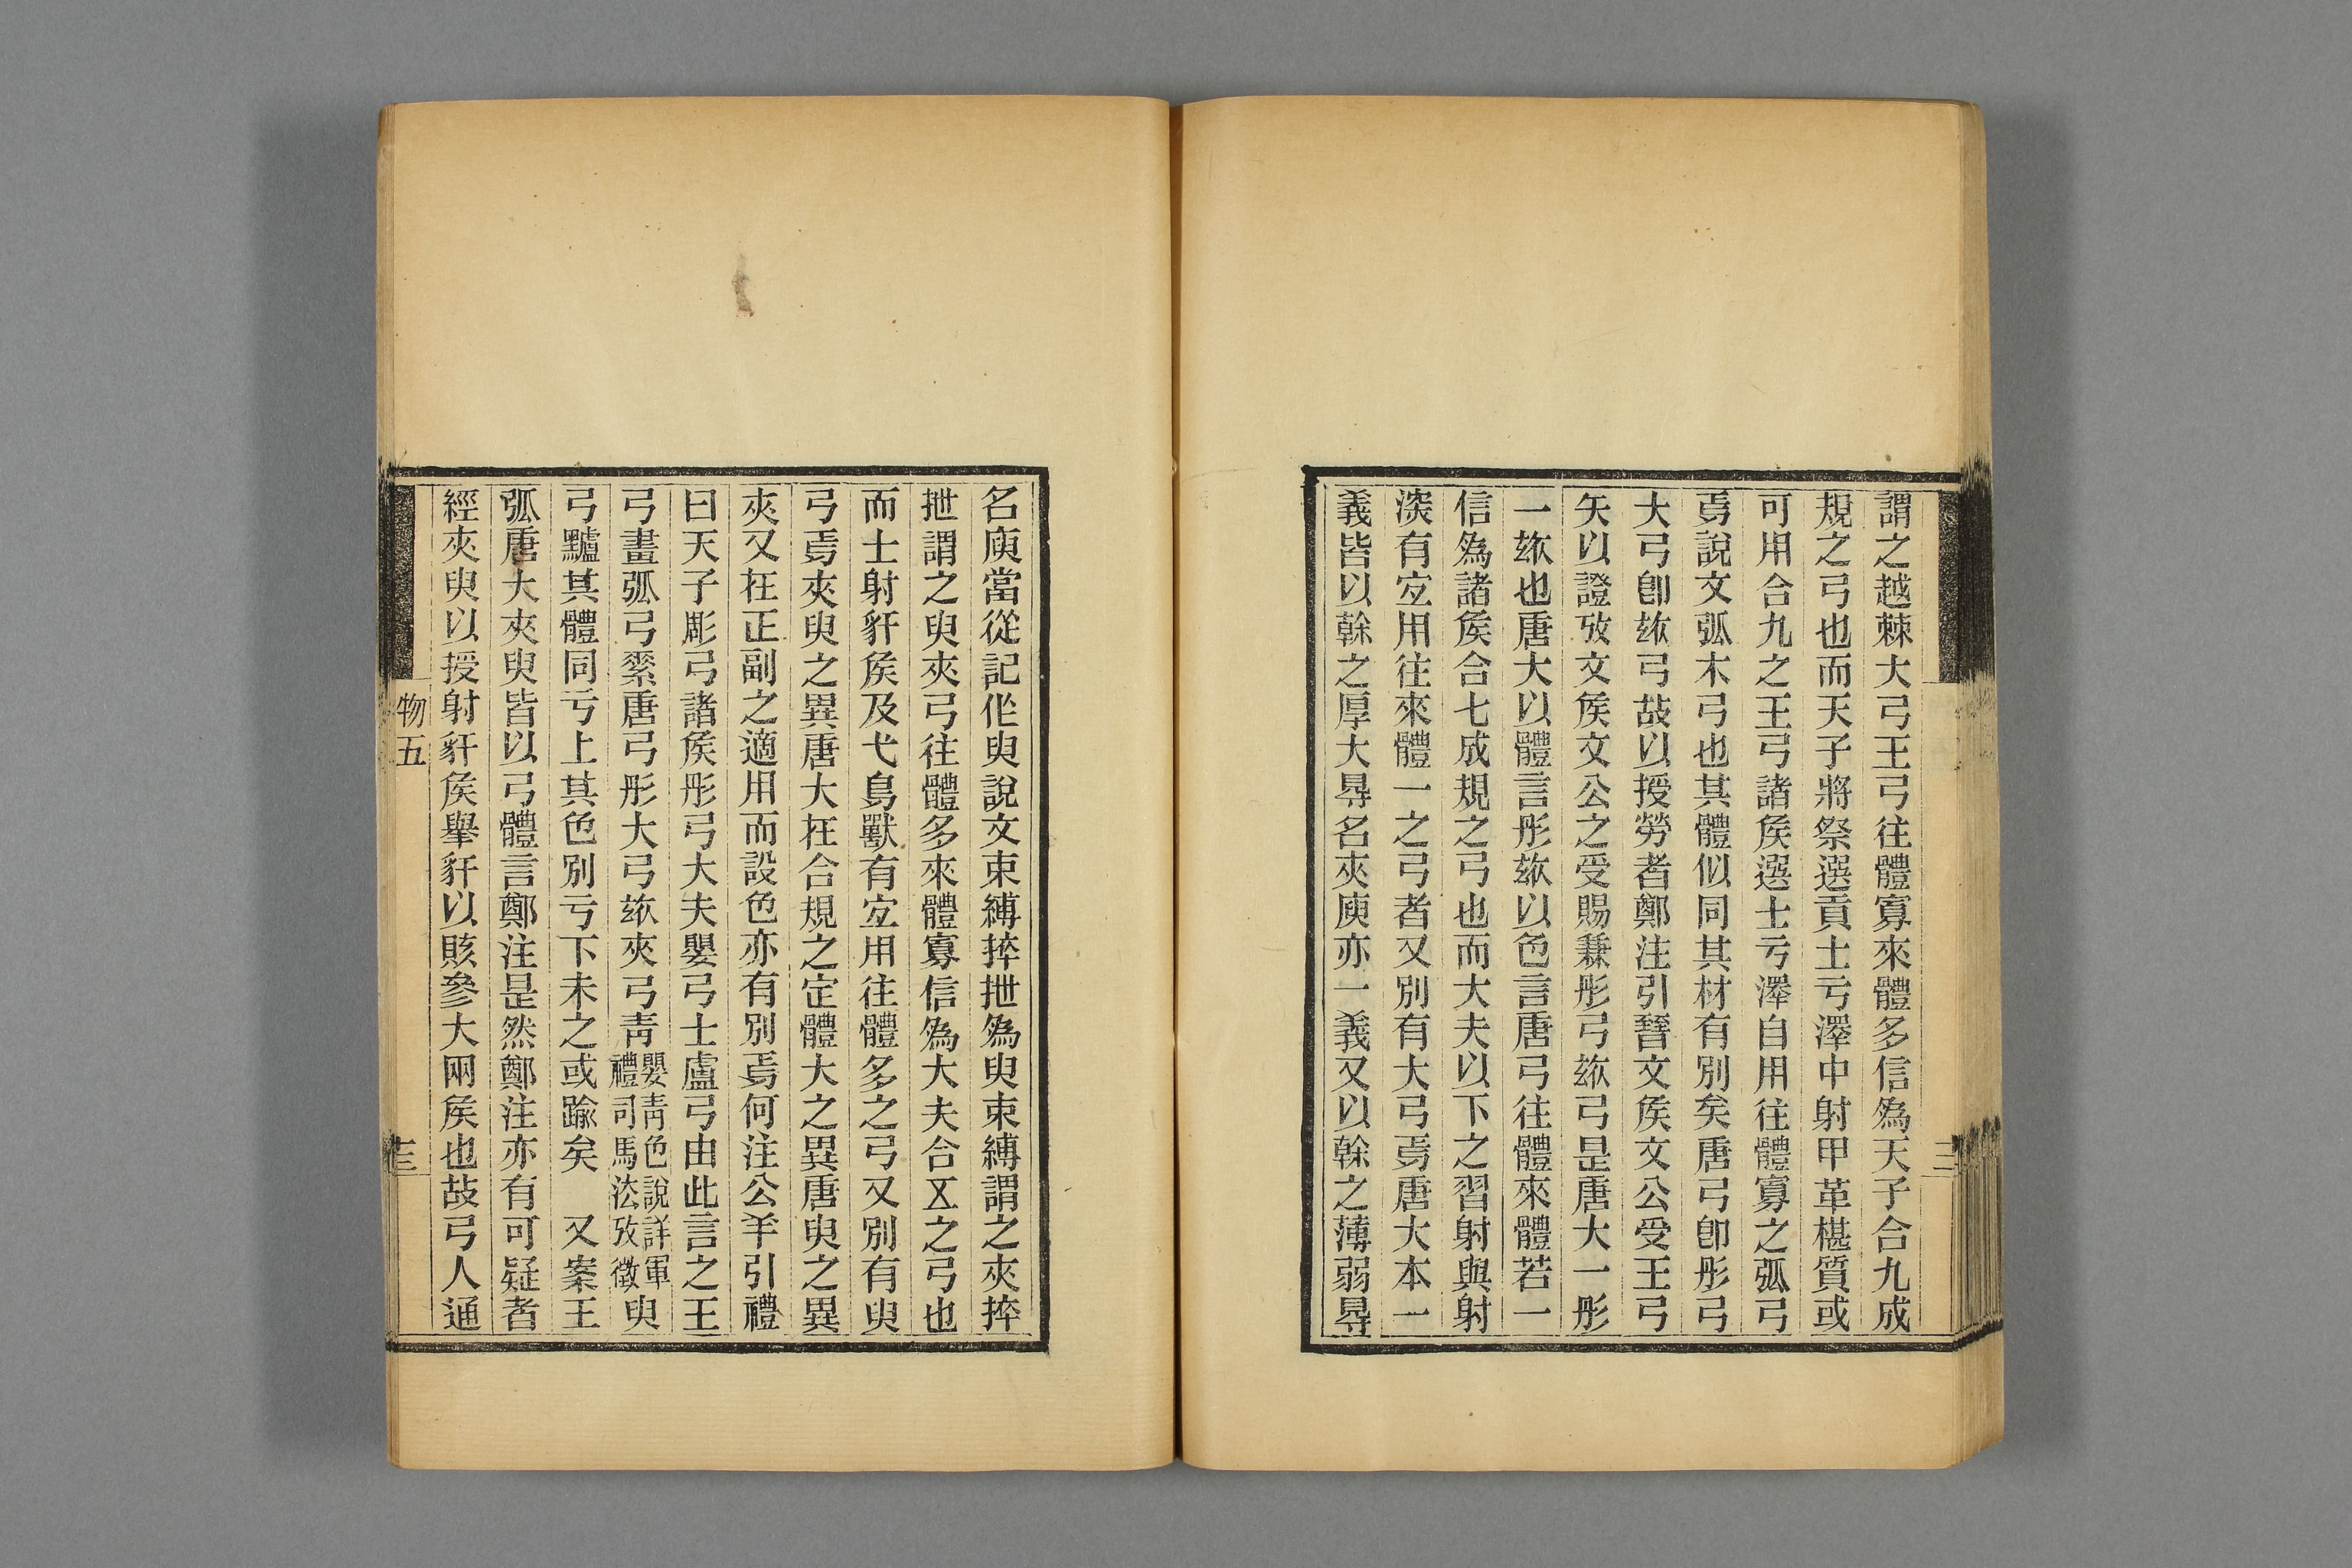 謂之越棘大弓王弓往體寡來體多信爲天子合九成
規之弓也而天子將祭選貢士亏澤中射甲革椹質或
可用合九之王弓諸矦選士亏澤自用往體寡之弧弓
焉說文弧木弓也其體似同其材有別矣唐弓卽彤弓
大弓卽玈弓故以授勞者鄭注引晉文矦文公受王弓
矢以證攷文矦文公之受賜兼彤弓玈弓是唐大一彤
一玈也唐大以體言彤玈以色言唐弓往體來體若一
信爲諸矦合七成規之弓也而大夫以下之習射與射
深有定用往來體一之弓者又別有大弓焉唐大本一
義皆以榦之厚大得名夾庾亦一義又以榦之薄弱得
名庾當從記作臾說文束縛捽抴爲臾束縛謂之夾捽
抴謂之臾夾弓往體多來體寡信爲大夫合五之弓也
而士射豻矦及弋鳥獸有定用往體多之弓又別有臾
弓焉夾臾之異唐大在合規之定體大之異唐臾之異
夾又在正副之適用而設色亦有別焉何注公羊引禮
曰天子彫弓諸矦彤弓大夫嬰弓士盧弓由此言之王
弓畫弧弓漆唐弓彤大弓玈夾弓靑嬰靑色說詳軍禮司馬法攷徵臾
弓黸其體同亏上其色別亏下未之或踰矣 又案王
弧唐大夾臾皆以弓體言鄭注是然鄭注亦有可疑者
經夾臾以授射豻矦舉豻以賅參大兩矦也故弓人通
物五